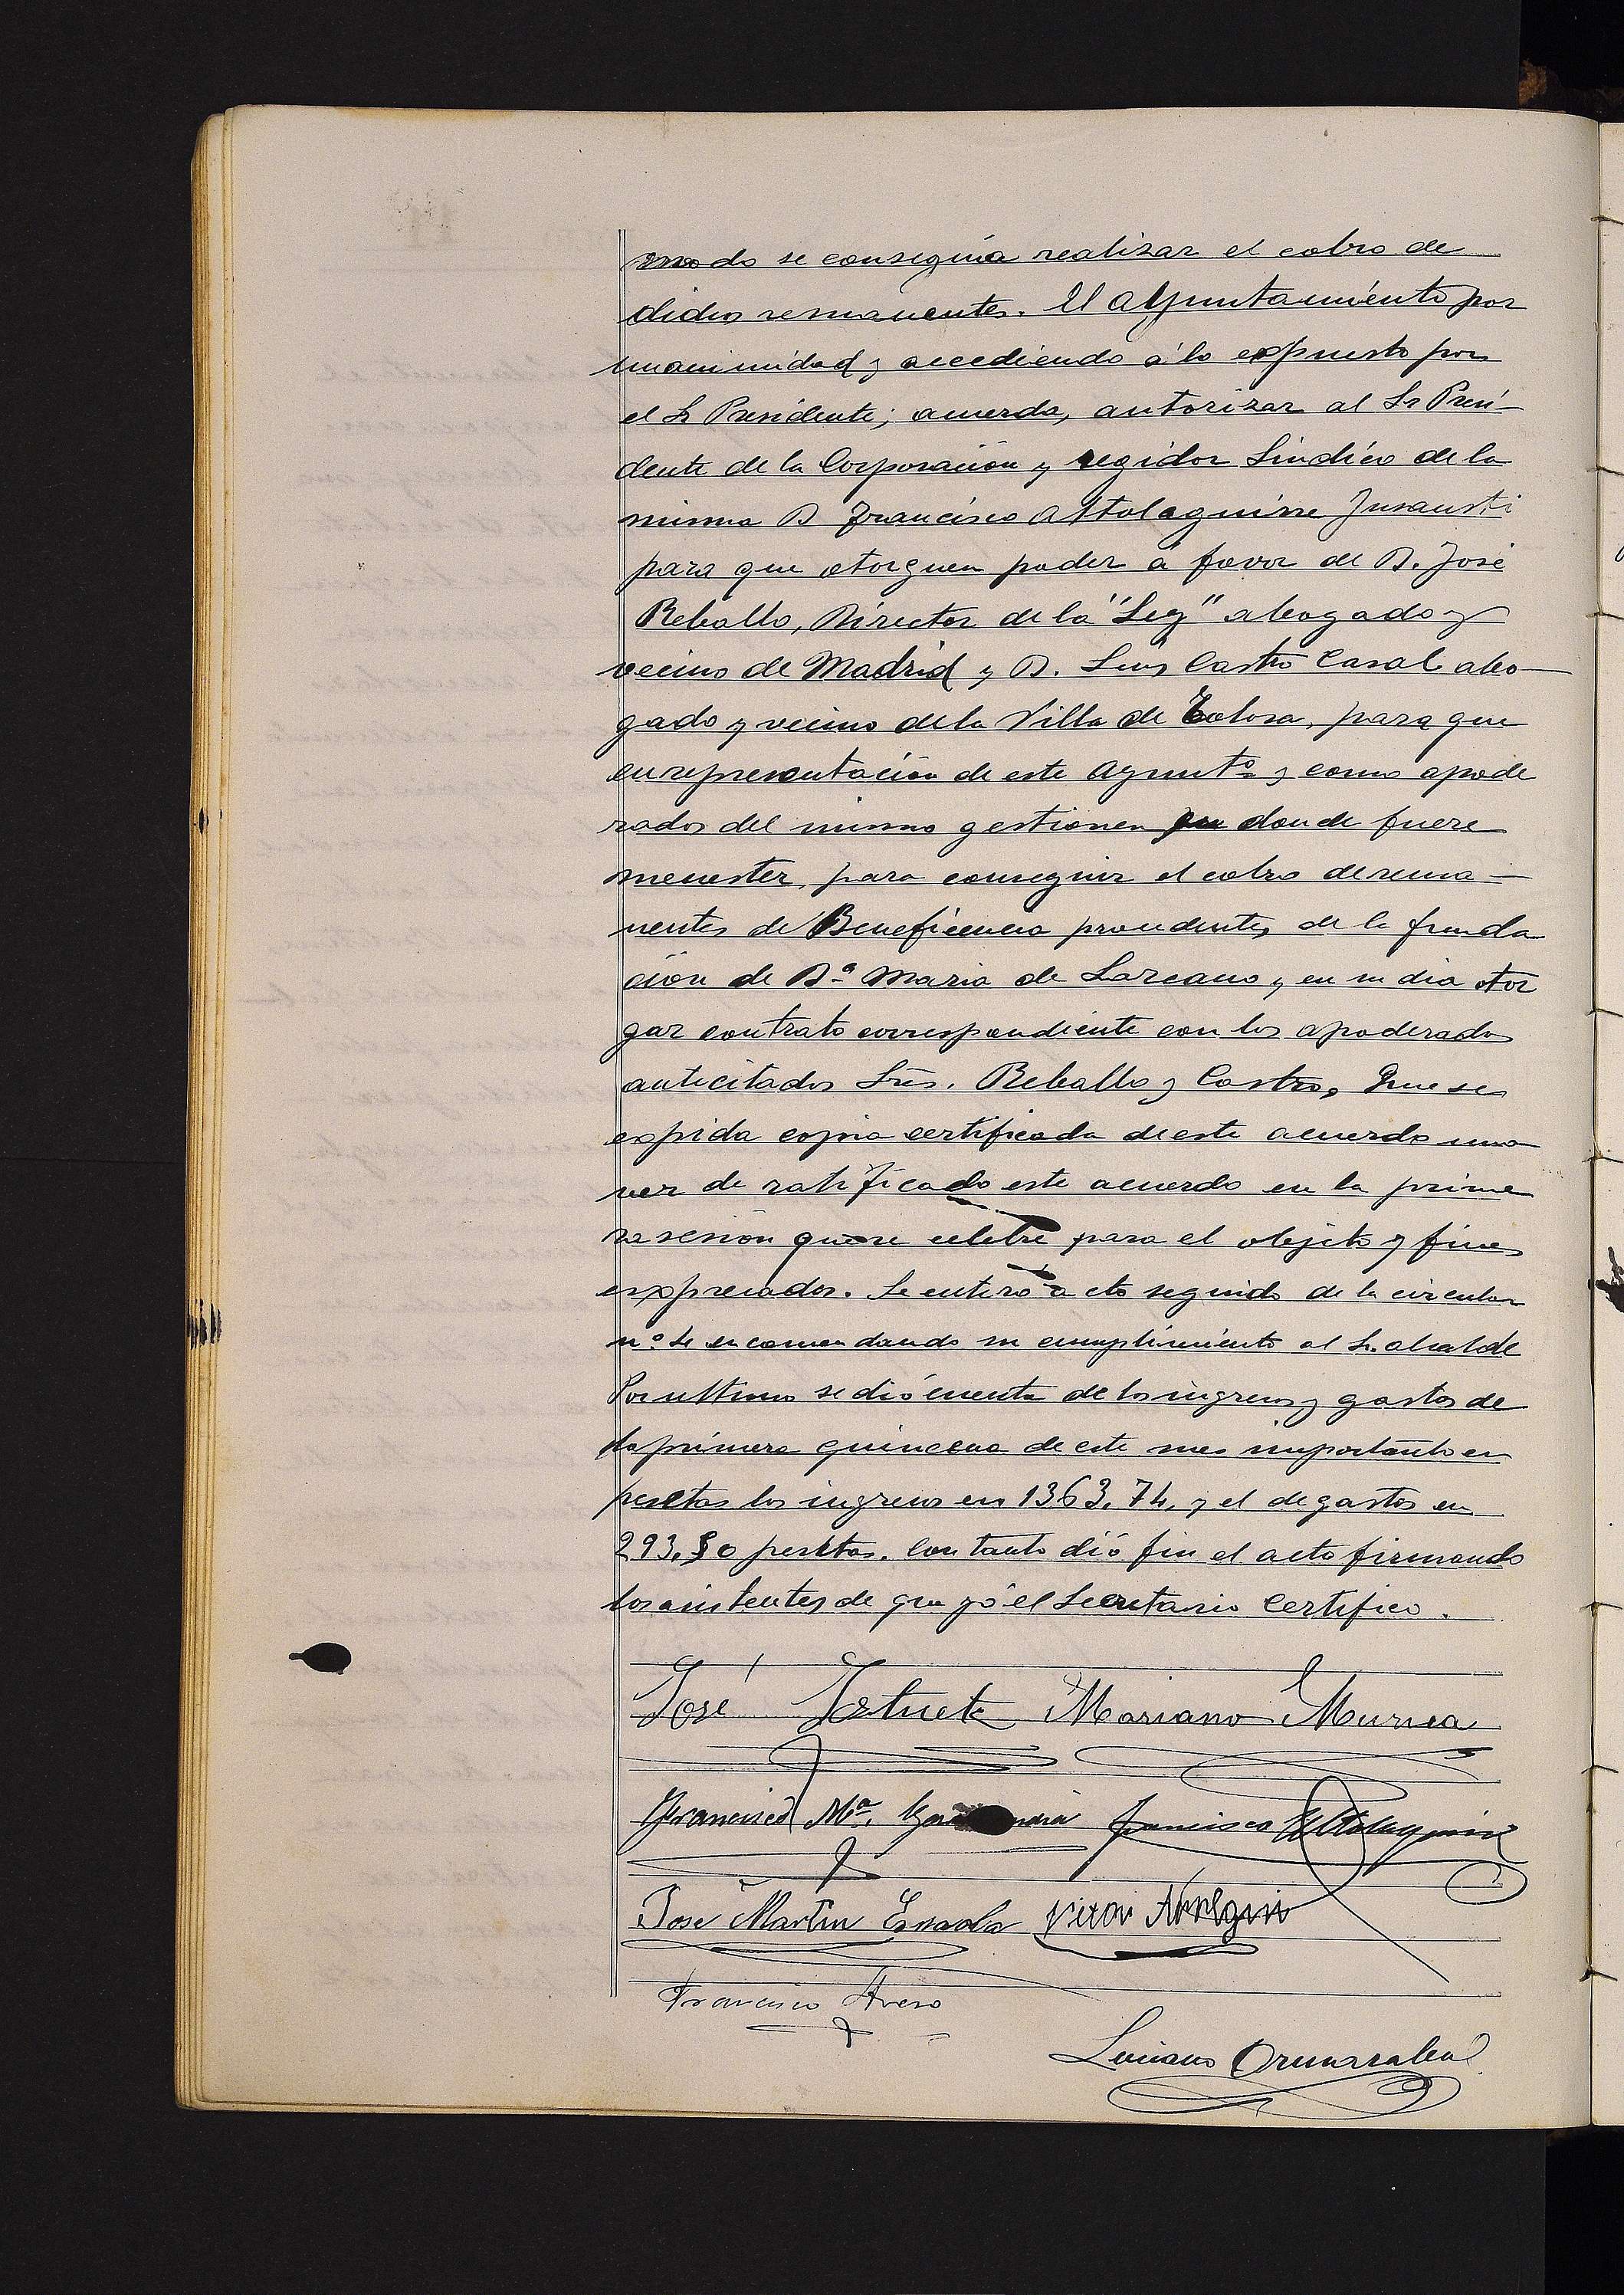 modo se conseguia realizar el cobro de
didios remanentes. El Ayuntamiento por
unanimidad y accediendo á lo expuesto por
el Sr Presidente; acuerda, autorizar al Sr Presi-
dente de la Corporación y regidor Síndico de la
misma D Francisco Altolaguirre Insausti
para que otorguen poder á favor de D. José
Reballo, Director de la "Ley" abogado y
vecino de Madrid y D. Luis Castro Casal abo-
gado y vecino de la Villa de Tolosa, para que
en representación de este Ayuntº y como apode
rados del mismo gestionen en donde fuere
menester, para conseguir el cobro de rema-
nentes de Beneficencia procedentes de la funda
ción de Dª Maria de Lazcano y en su dia otor
gar contrato correspondiente con los apoderados
anticitados Srs. Reballo y Castro, Que se
expida copia certificada de este acuerdo una
vez de ratificado este acuerdo en la prime
ra sesión que se celebre para el objeto y fines
expresados. Se enteró acto seguido de la circular
nº 4 encomendando su cumplimiento al Sr. alcalde
Por ultimo se dió cuenta de los ingresos y gastos de
la primera quincena de este mes importante en
pesetas los ingresos en 1363,74, y el de gastos en
293,80 pesetas. Con tanto dió fin el acto firmando
los asistentes de que yó el Secretario Certifico.
José Iztueta Mariano Murua
Francisco Mª. Francisco Altolaguirre
José Martin Esnaola
Francisco
Luciano